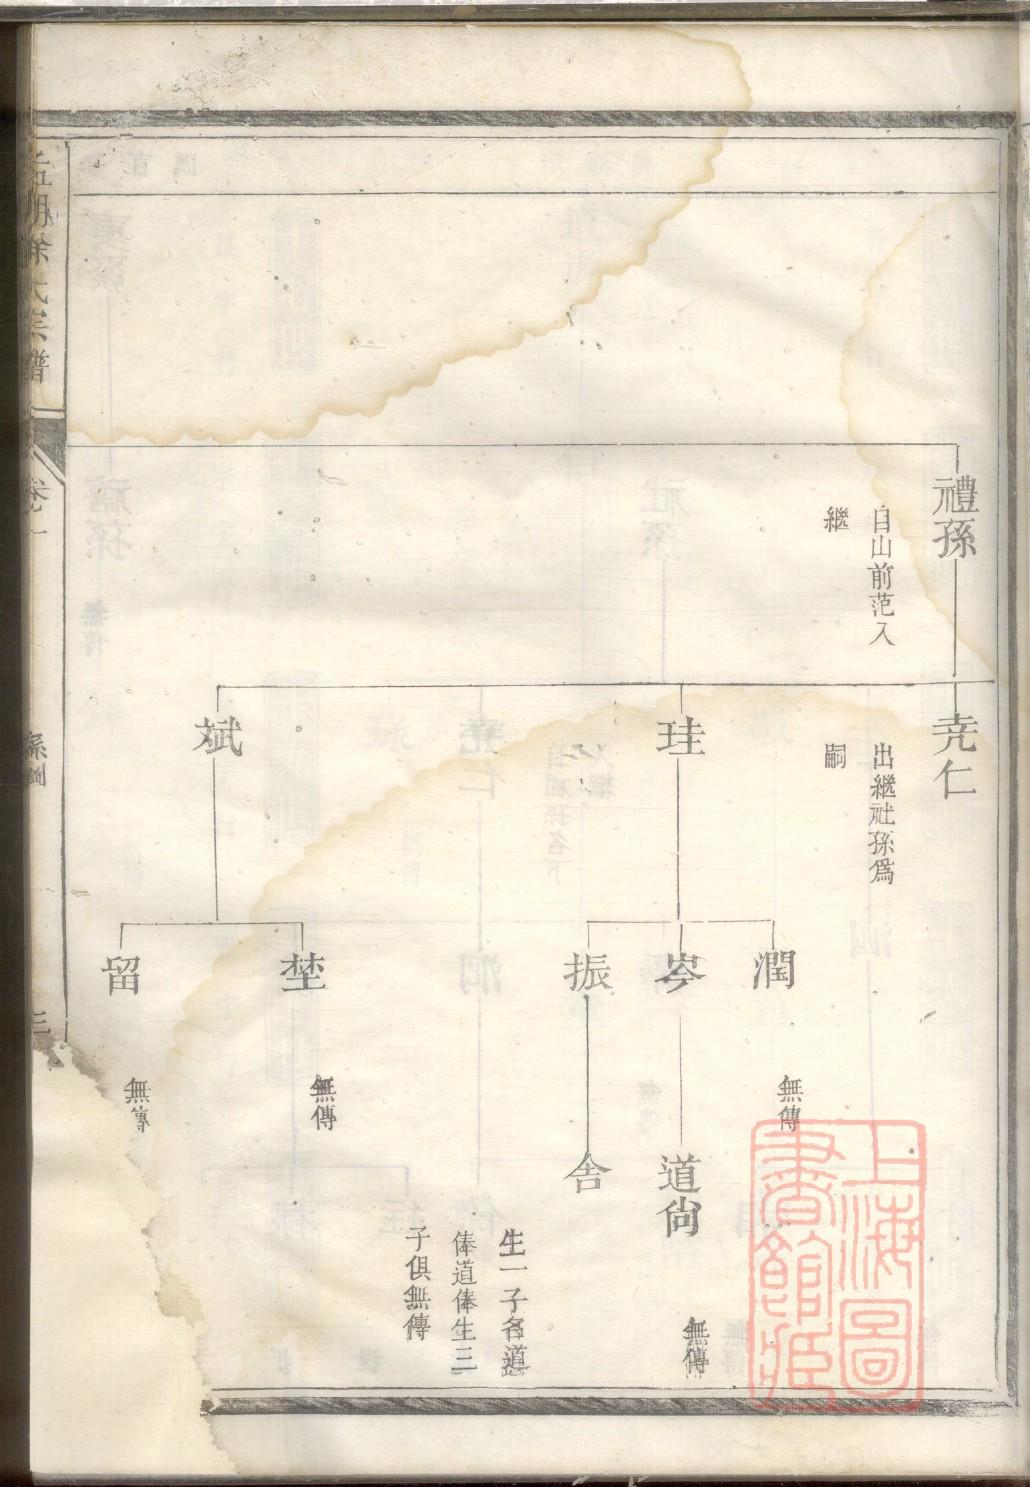 禮孫
自山前范入
繼
尭仁
出繼社孫爲
嗣
珪
潤
無傳
岑
道尙
無傳
振
舎
生一子名道
俸道俸生三
子俱無傳
斌
埜
無傳
留
無傳
徐氏宗譜
卷一
系圖
三
上海圖
書館藏